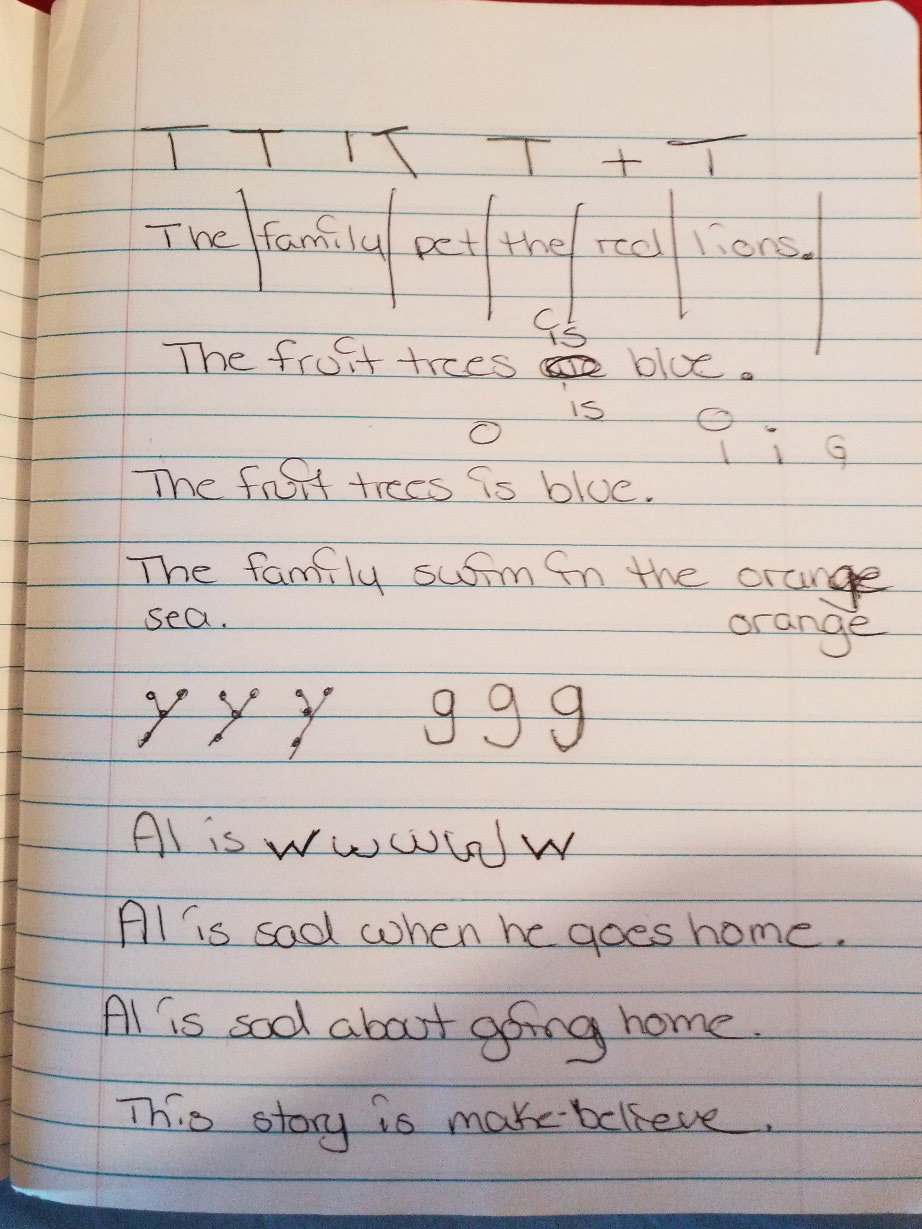 T T I T T + T
The family pet the red lions.
is
The fruit trees are blue.
is
The fruit trees is blue.
The family swim in the orange
sea. orange
y y y g g g
Al is w w w w w
Al is sad when he goes home.
Al is sad about going home.
This story is make-believe.